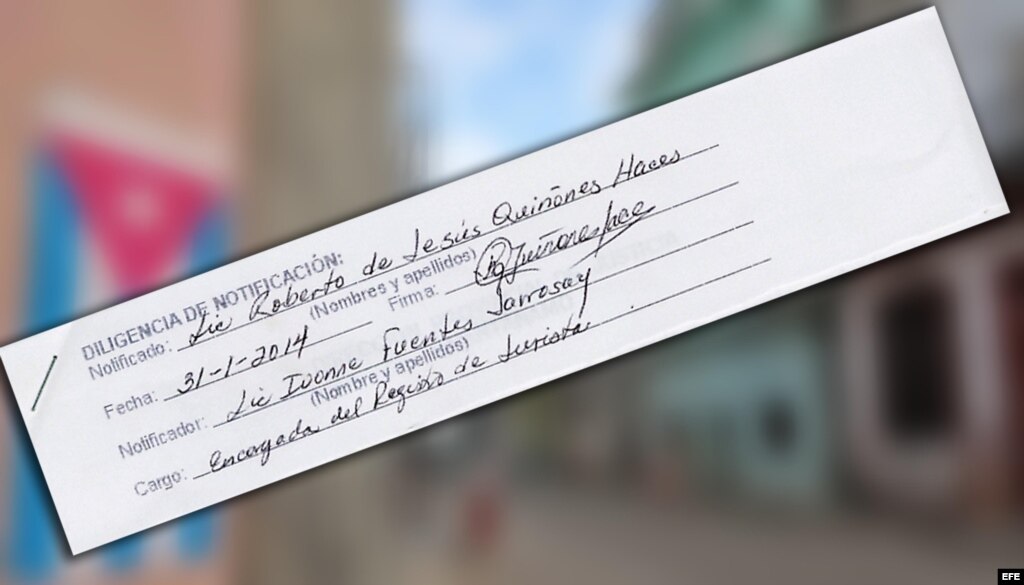 DILIGENCIA DE NOTIFICACIÓN:
Notificado: Lic Roberto de Jesús Quiñones Haces
(Nombres y apellidos)
Fecha: 31-1-2014 Firma: RQuiñonesHaces
Notificador: Lic Ivonne Fuentes Jarrosay
(Nombre y apellidos)
Cargo: Encargada del Registro de Jurista.
EFE